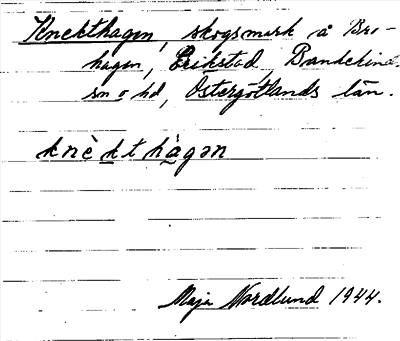 Knekthagen, skogsmark å Bro-
hagen, Erikstad, Bankekind
sn o hd, Östergötlands län.
knèkthàgən
Maja Nordlund 1944.